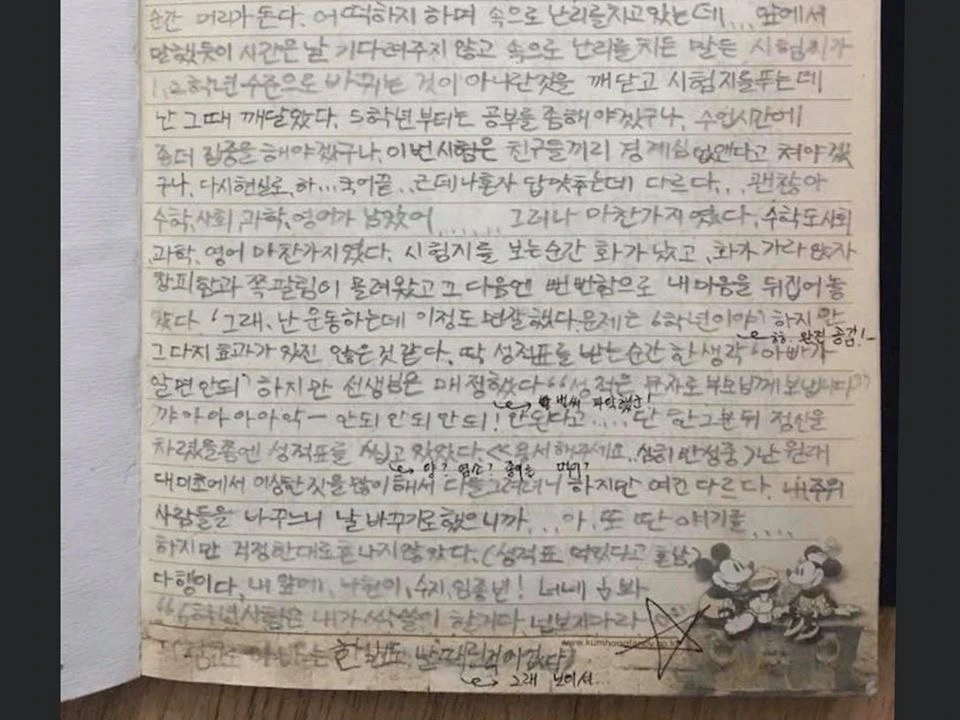 순간 머리가 돈다. 어떡하지 하며 속으로 난리를 치고 있는데... 앞에서
말했듯이 시간은 날 기다려주지 않고 속으로 난리를 치든 말든 시험지가
1,2학년 수준으로 바뀌는 것이 아니란것을 깨닫고 시험지를 푸는데
난 그때 깨달았다. 5학년부터는 공부를 좀 해야겠구나, 수업시간에
좀더 집중을 해야겠구나, 이번시험은 친구들끼리 경계심 없앤다고 쳐야겠
구나, 다시현실로, 하... 국어끝.. 근데 나혼자 답맞추는데 다르다... 괜찮아
수학, 사회, 과학, 영어가 남았어...... 그러나 마찬가지였다, 수학도 사회
,과학, 영어 마찬가지였다. 시험지를 보는순간 화가 났고, 화가 가라앉자
창피함과 쪽팔림이 몰려왔고 그 다음엔 뻔뻔함으로 내마음을 뒤집어 놓
았다. '그래, 난 운동하는데 이정도면 잘했다. 문제는 6학년이야' 하지만
ㅎㅎ. 완전 공감!
그다지 효과가 있진 않은것 같다. 딱 성적표를 받는순간 한 생각 '아빠가
알면 안되' 하지만 선생님은 매정했다 "성적은 문자로 부모님께 보냅니다"
벌써 파악했군!
꺄아아아아악ㅡ 안되 안되 안되! 안된다고.... 단 한 그분 뒤 정신을
차렸을쯤엔 성적표를 씹고 있었다 << 용서해주세요.. 심히 반성중> 난 원래
양? 염소? 종이를 먹어?
대미초에서 이상한 짓을 많이해서 다들그려려니 하지만 여긴 다르다. 내 주위
사람들을 바꾸느니 날 바꾸기로했으니까... 아, 또 딴 얘기를....
하지만 걱정한대로 혼나지 않았다. (성적표 먹었다고 혼남)
다행이다, 내 앞에, 나현이, 수지, 임종빈! 너네 놈 봐
"6학년시험은 내가 싹쓸이 할거다, 넘보지마라
www.kumhong
한 번도 날 때린적이없다)
그래 넌이서...